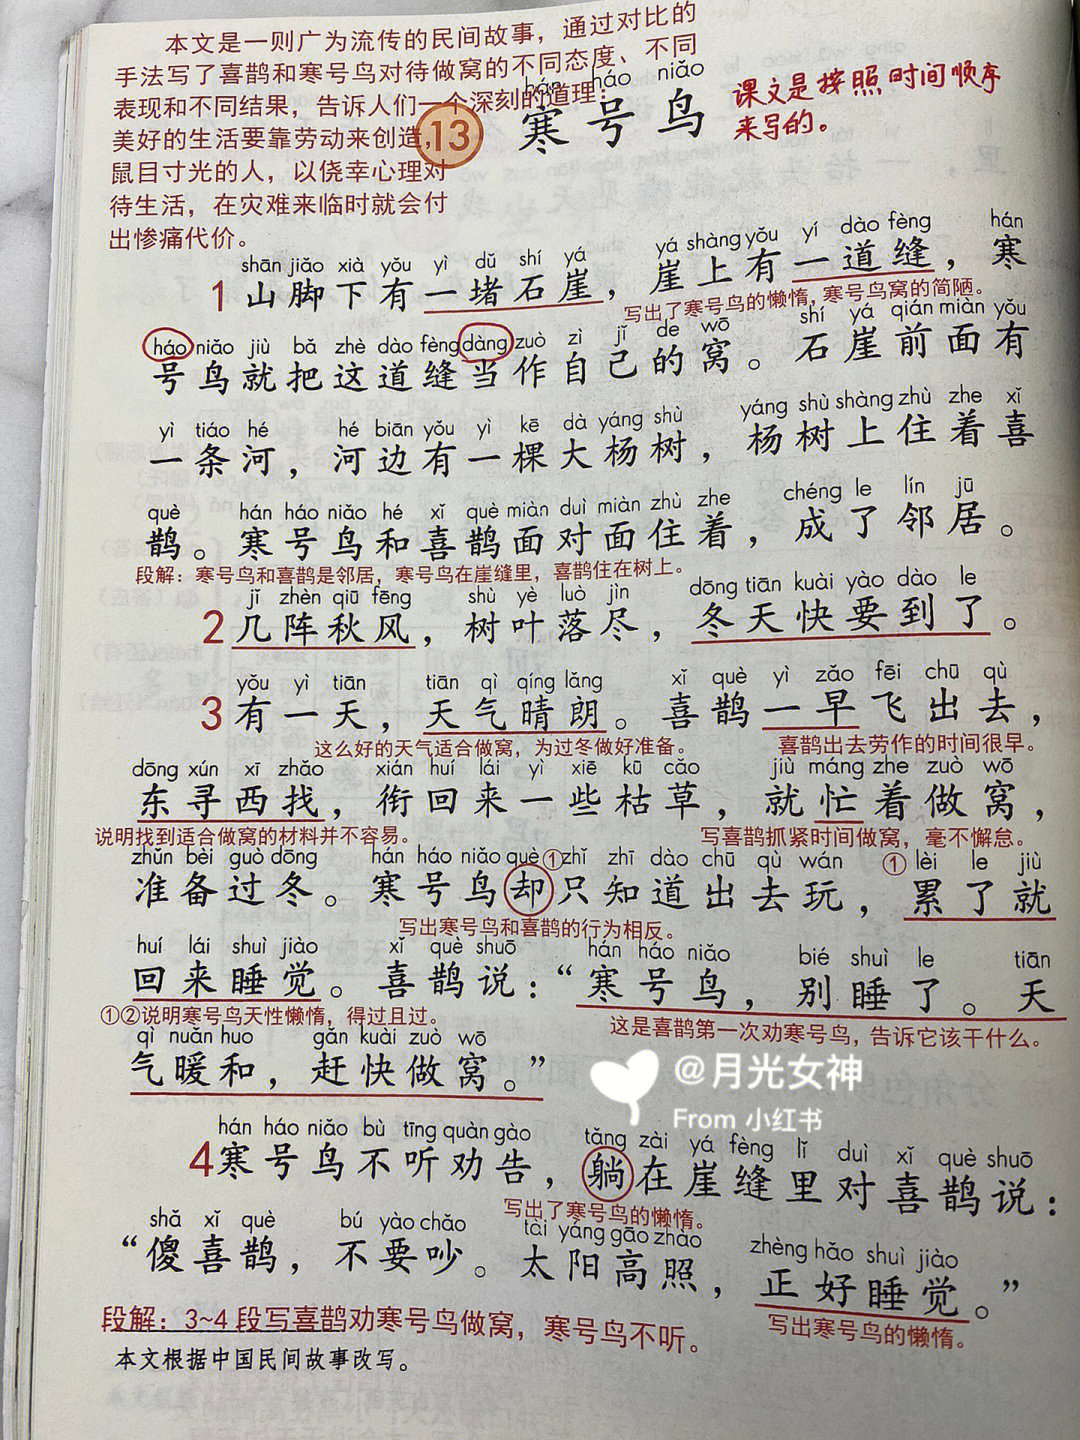 本文是一则广为流传的民间故事，通过对比的
手法写了喜鹊和寒号鸟对待做窝的不同态度、不同
表现和不同结果，告诉人们一个深刻的道理：
美好的生活要靠劳动来创造，
鼠目寸光的人，以侥幸心理对
待生活，在灾难来临时就会付
出惨痛代价。
hán háo niǎo
13 寒号鸟
课文是按照时间顺序
来写的。
shān jiǎo xià yǒu yì dǔ shí yá yá shàng yǒu yí dào fèng hán
1 山脚下有一堵石崖，崖上有一道缝，寒
写出了寒号鸟的懒惰，寒号鸟窝的简陋。
háo niǎo jiù bǎ zhè dào fèng dàng zuò zì jǐ de wō shí yá qián miàn yǒu
号鸟就把这道缝当作自己的窝。石崖前面有
yì tiáo hé hé biān yǒu yì kē dà yáng shù yáng shù shàng zhù zhe xǐ
一条河，河边有一棵大杨树，杨树上住着喜
què hán háo niǎo hé xǐ què miàn duì miàn zhù zhe chéng le lín jū
鹊。寒号鸟和喜鹊面对面住着，成了邻居。
段解：寒号鸟和喜鹊是邻居，寒号鸟在崖缝里，喜鹊住在树上。
jǐ zhèn qiū fēng shù yè luò jìn dōng tiān kuài yào dào le
2 几阵秋风，树叶落尽，冬天快要到了。
yǒu yì tiān tiān qì qíng lǎng xǐ què yì zǎo fēi chū qù
3 有一天，天气晴朗。喜鹊一早飞出去，
这么好的天气适合做窝，为过冬做好准备。 喜鹊出去劳作的时间很早。
dōng xún xī zhǎo xián huí lái yì xiē kū cǎo jiù máng zhe zuò wō
东寻西找，衔回来一些枯草，就忙着做窝，
说明找到适合做窝的材料并不容易。 写喜鹊抓紧时间做窝，毫不懈怠。
zhǔn bèi guò dōng hán háo niǎo què ①zhǐ zhī dào chū qù wán ①lèi le jiù
准备过冬。寒号鸟却只知道出去玩，累了就
写出寒号鸟和喜鹊的行为相反。
huí lái shuì jiào xǐ què shuō hán háo niǎo bié shuì le tiān
回来睡觉。喜鹊说：“寒号鸟，别睡了。天
①②说明寒号鸟天性懒惰，得过且过。 这是喜鹊第一次劝寒号鸟，告诉它该干什么。
qì nuǎn huo gǎn kuài zuò wō
气暖和，赶快做窝。”
@月光女神
From 小红书
hán háo niǎo bù tīng quàn gào tǎng zài yá fèng lǐ duì xǐ què shuō
4 寒号鸟不听劝告，躺在崖缝里对喜鹊说：
写出了寒号鸟的懒惰。
shǎ xǐ què bú yào chǎo tài yáng gāo zhào zhèng hǎo shuì jiào
“傻喜鹊，不要吵。太阳高照，正好睡觉。”
段解：3~4 段写喜鹊劝寒号鸟做窝，寒号鸟不听。 写出寒号鸟的懒惰。
本文根据中国民间故事改写。